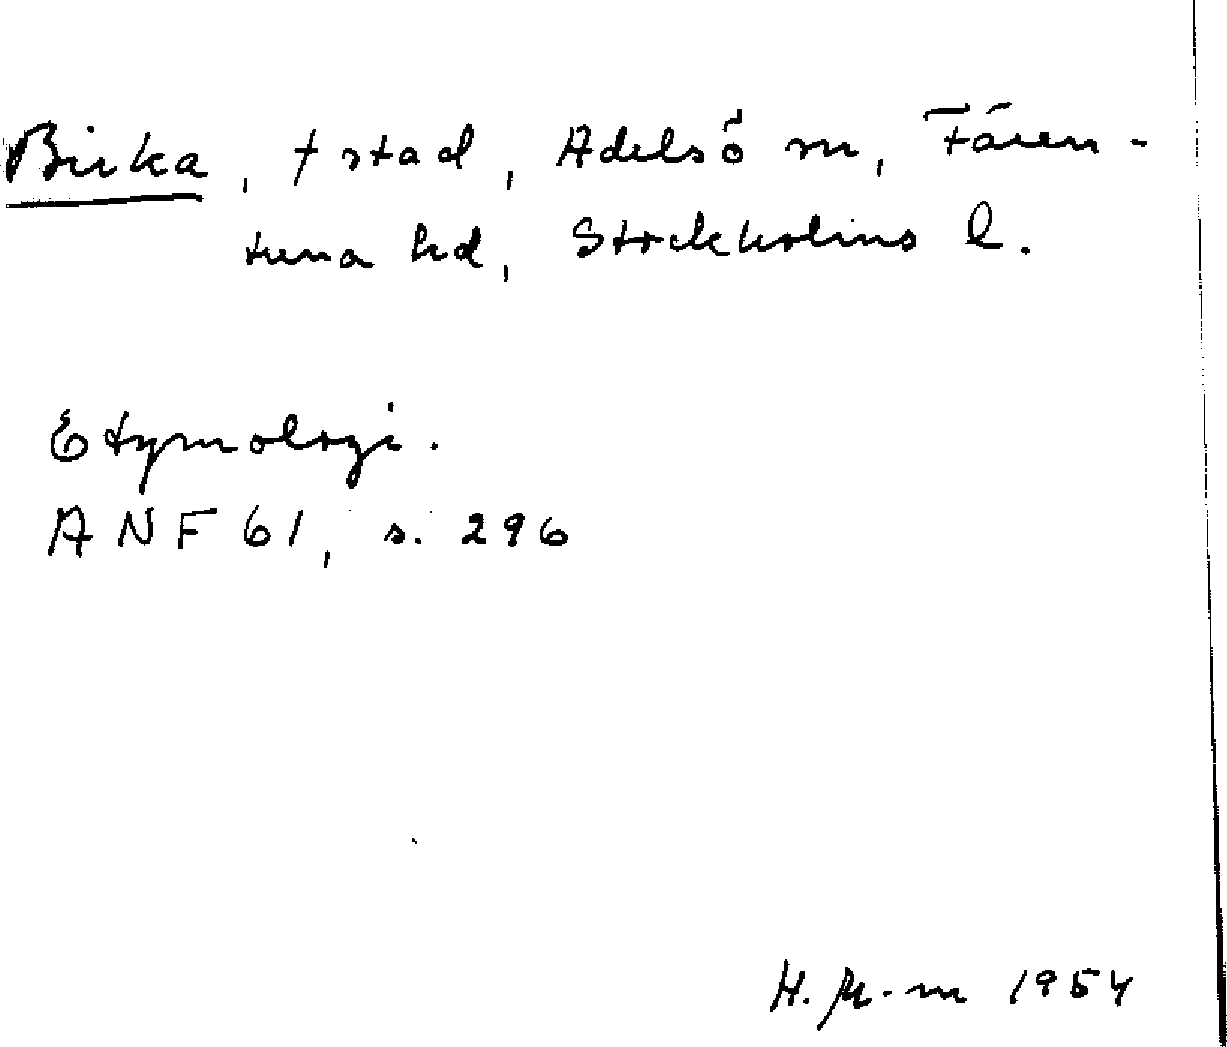 Birka, † stad, Adelsö sn, Fären-
tuna hd, Stockholms l.
Etymologi.
ANF 61, s. 296
H. 1954